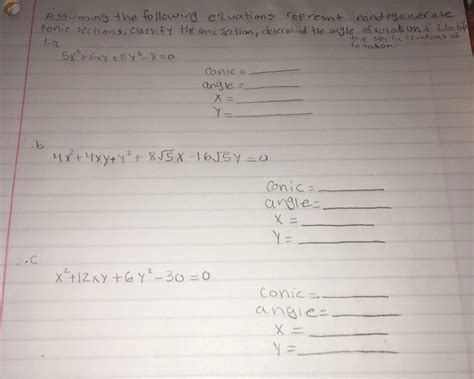 Assuming the following equations represent nondegenerate
Conic sections, classify the conic section, determind the angle of rotation &
the specific equations of
rotation.
1.a
5x²+6xy+5y²-8=0
Conic=
angle=
X=
Y=
.b
4x²+4xy+y²+8√5x-16√5y=0
Conic=
angle=
X=
Y=
.c
x²+12xy+6y²-30=0
Conic=
angle=
X=
Y=